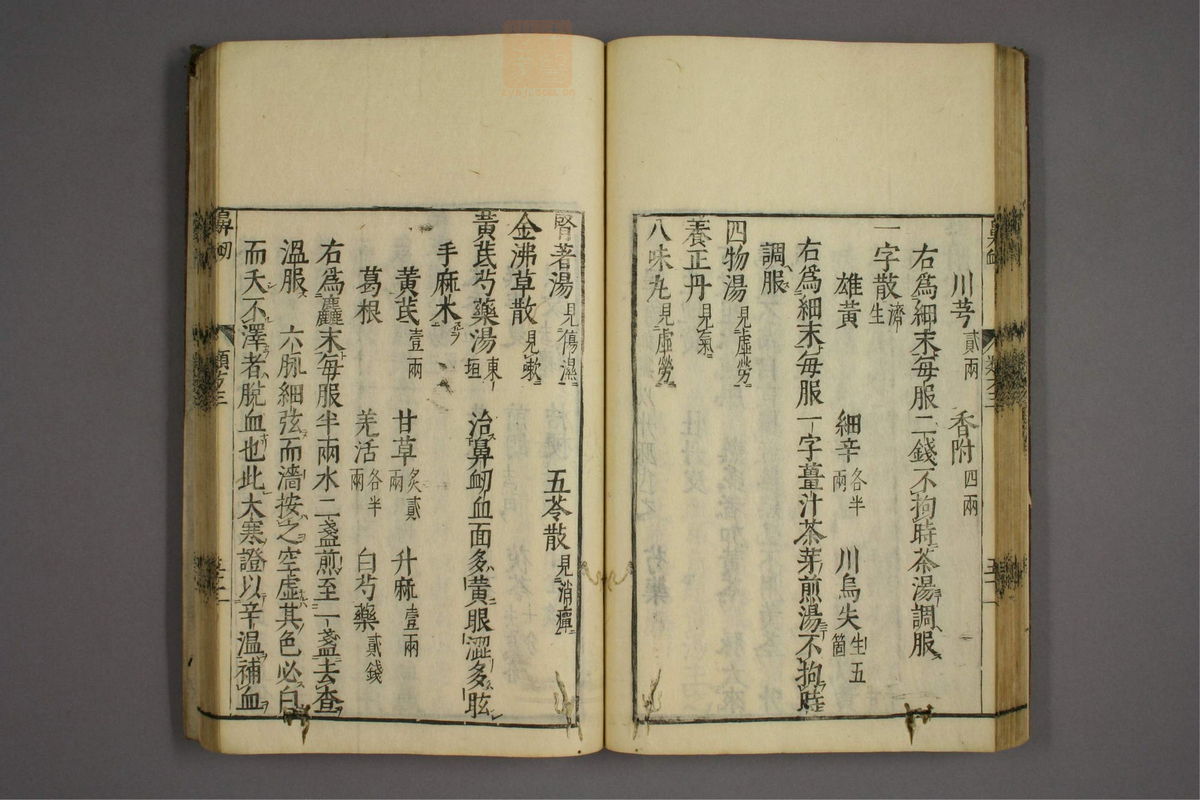 川芎貳兩 香附四兩
右爲細末每服二錢不拘時茶湯調服
一字散濟生
雄黃 細辛各半兩 川烏失生五箇
右爲細末每服一字薑汁茶芽煎湯不拘時
調服
四物湯見虛勞
養正丹見氣
八味丸見虛勞
腎著湯見傷濕 五苓散見消癉
金沸草散見嗽
黃芪芍藥湯東垣 治鼻衂血面多黃眼澀多眩
手麻木
黃芪壹兩 甘草炙貳兩 升麻壹兩
葛根 羌活各半兩 白芍藥貳錢
右爲麤末每服半兩水二盞煎至一盞去查
溫服 六脈細弦而濇按之空虛其色必白
而夭不澤者脫血也此大寒證以辛溫補血
鼻衂 類方三